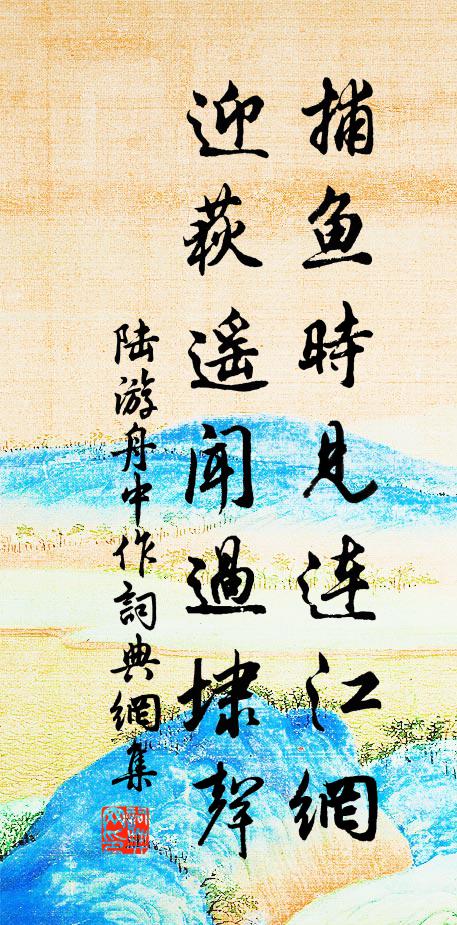 捕鱼時見連江網
迎荻遥闻過埭聲
陆游舟中作詞典網集